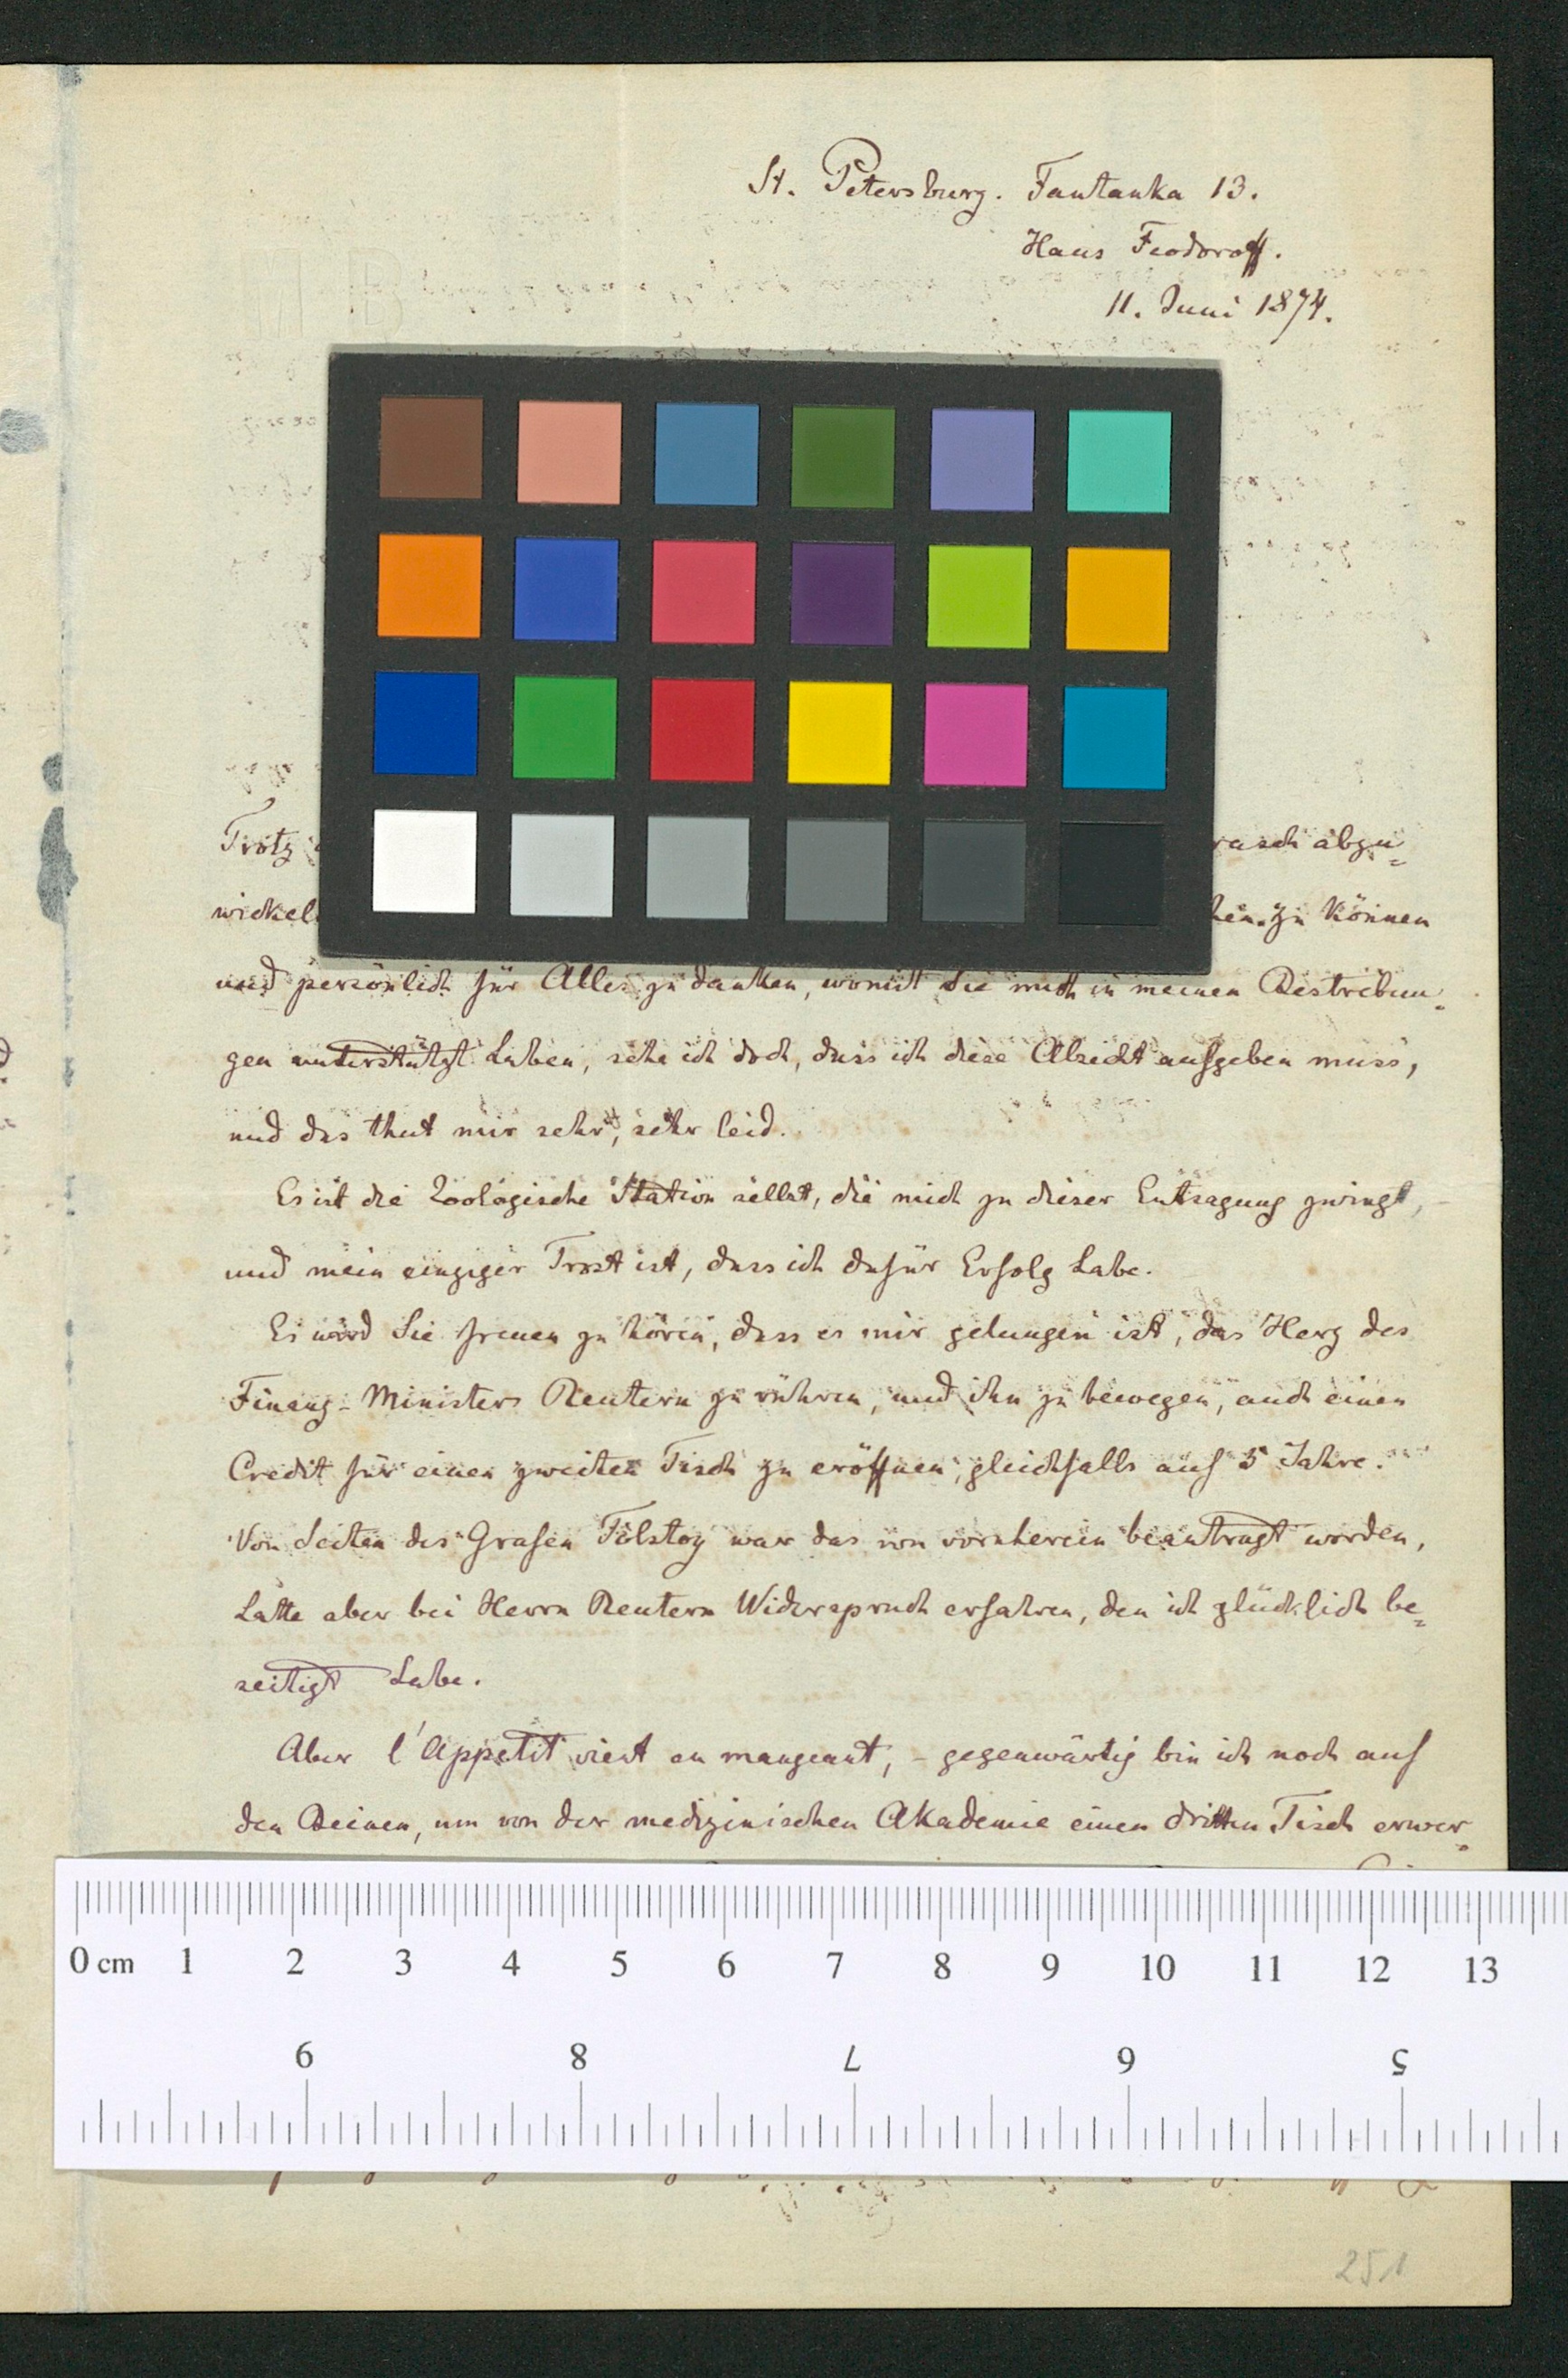 St. Petersburg. Fantanka 13.
Haus Feodoroff.
11. Juni 1874.
Trotz rasch abzu=
wickel zu können
und persönlich für Alles zu danken, womit Sie mich in meinen Bestrebun=
gen unterstützt haben, sehe ich doch, dass ich diese Absicht aufgeben muss,
und das thut mir sehr, sehr leid.
Es ist die Zoologische Station selbst, die mich zu dieser Entsagung zwingt, –
und mein einziger Trost ist, dass ich dafür Erfolg habe.
Es wird Sie freuen zu hören, dass es mir gelungen ist, das Herz des
Finanz-Ministers Reutern zu rühren, und ihn zu bewegen, auch einen
Credit für einen zweiten Tisch zu eröffnen, gleichfalls auf 5 Jahre.
Von Seiten des Grafen Tolstoy war das von vornherein beantragt worden,
hatte aber bei Herrn Reutern Widerspruch erfahren, den ich glücklich be=
seitigt habe.
Aber l'Appetit vient en mangeant, – gegenwärtig bin ich noch auf
den Beinen, um von der medizinischen Akademie einen dritten Tisch erwer=
0 cm 1 2 3 4 5 6 7 8 9 10 11 12 13
9 8 7 6 5
251